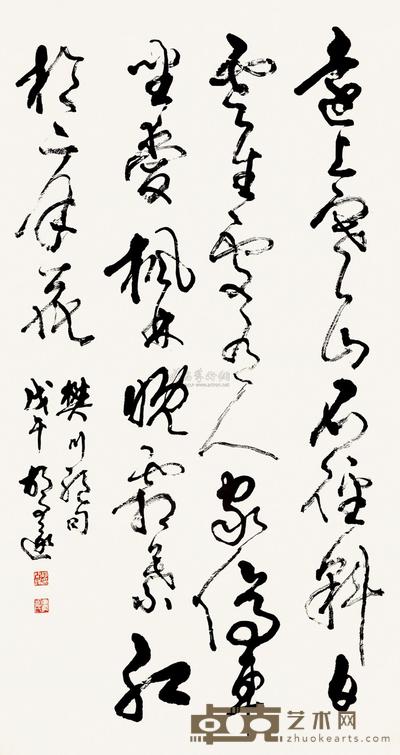 遠上寒山石徑斜白
雲生處有人家停車
坐愛楓林晚霜葉紅
於二月花
樊川絕句
戊午胡問遂
卓克艺术网
zhuokearts.com